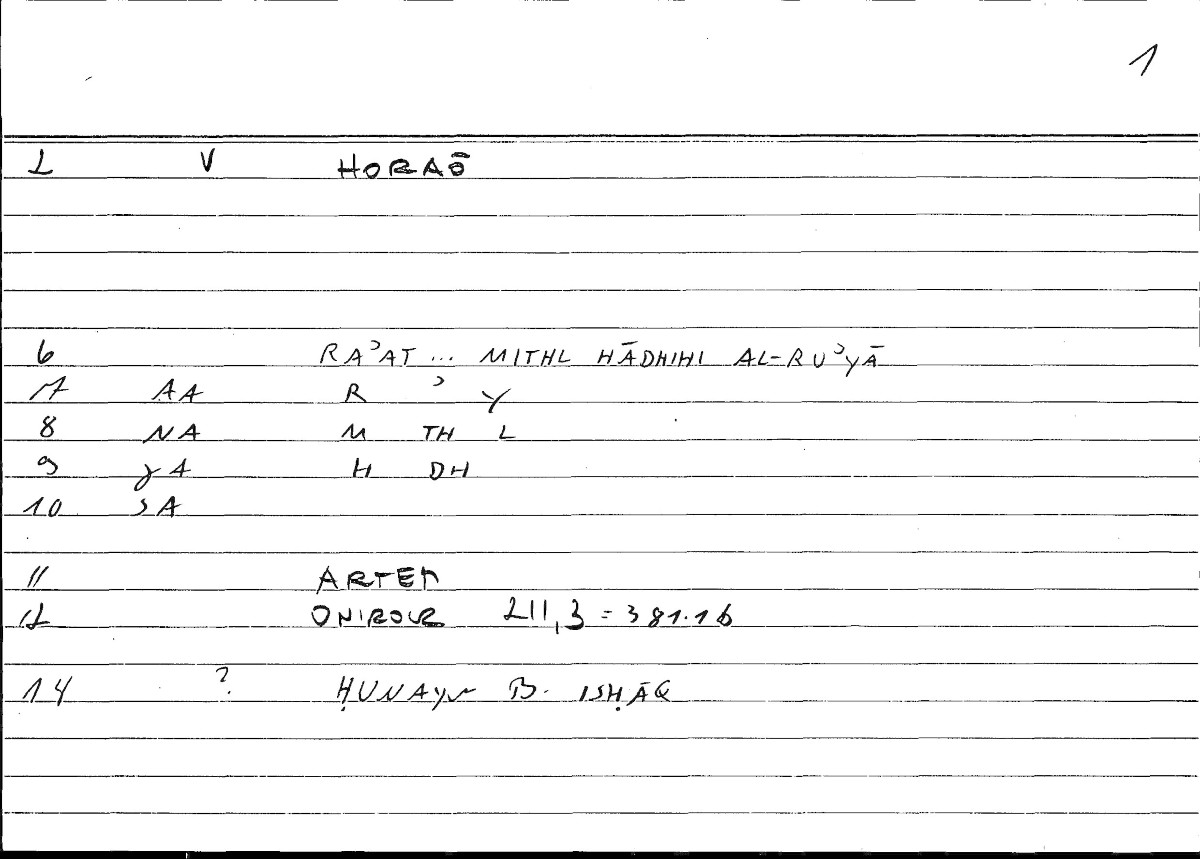 1
2 V HORAŌ
6 RAʾAT ... MITHL HĀDHIHI AL-RUʾYĀ
7 AA R ʾ Y
8 NA M TH L
9 γA H DH
10 ɔA
11 ARTEM
12 ONIROCR 211,3 = 381.16
14 ? ḤUNAYN B. ISḤĀQ